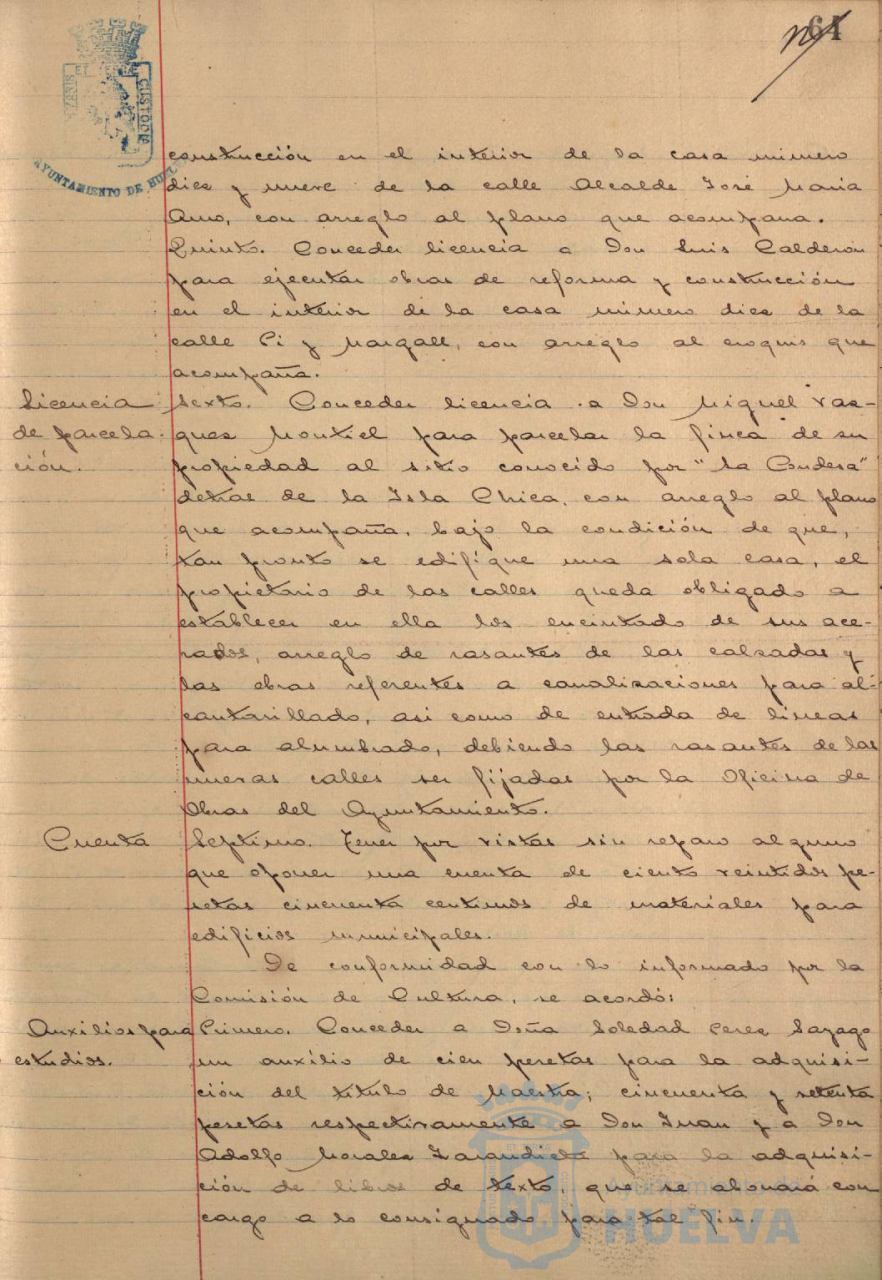 61
AYUNTAMIENTO DE HUELVA
construcción en el interior de la casa número
diez y nueve de la calle Alcalde José María
Amo, con arreglo al plano que acompaña.
Quinto. Conceder licencia a Don Luis Calderon
para ejecutar obras de reforma y construcción
en el interior de la casa número diez de la
calle Pi y Margall, con arreglo al croquis que
acompaña.
Licencia de parcela-ción.
Sexto. Conceder licencia a Don Miguel Vaz-
quez Montiel para parcelar la finca de su
propiedad al sitio conocido por "La Condesa"
detras de la Isla Chica, con arreglo al plano
que acompaña, bajo la condición de que,
tan pronto se edifique una sola casa, el
propietario de las calles queda obligado a
establecer en ella los encintado de sus ace-
rados, arreglo de rasantes de las calzadas y
las obras referentes a canalizaciones para al-
cantarillado, asi como de entrada de lineas
para alumbrado, debiendo las rasantes de las
nuevas calles ser fijadas por la Oficina de
Obras del Ayuntamiento.
Cuenta
Septimo. Tener por vistas sin reparo alguno
que oponer una cuenta de ciento veintidos pe-
setas cincuenta centimos de materiales para
edificios municipales.
De conformidad con lo informado por la
Comisión de Cultura, se acordó:
Auxilios para estudios.
Primero. Conceder a Doña Soledad Perez Sayago
un auxilio de cien pesetas para la adquisi-
ción del título de Maestra; cincuenta y setenta
pesetas respectivamente a Don Juan y a Don
Adolfo Morales Zarandieta para la adquisi-
ción de libros de texto, que se abonará con
cargo a lo consignado para tal fin.
Ayuntamiento de
HUELVA